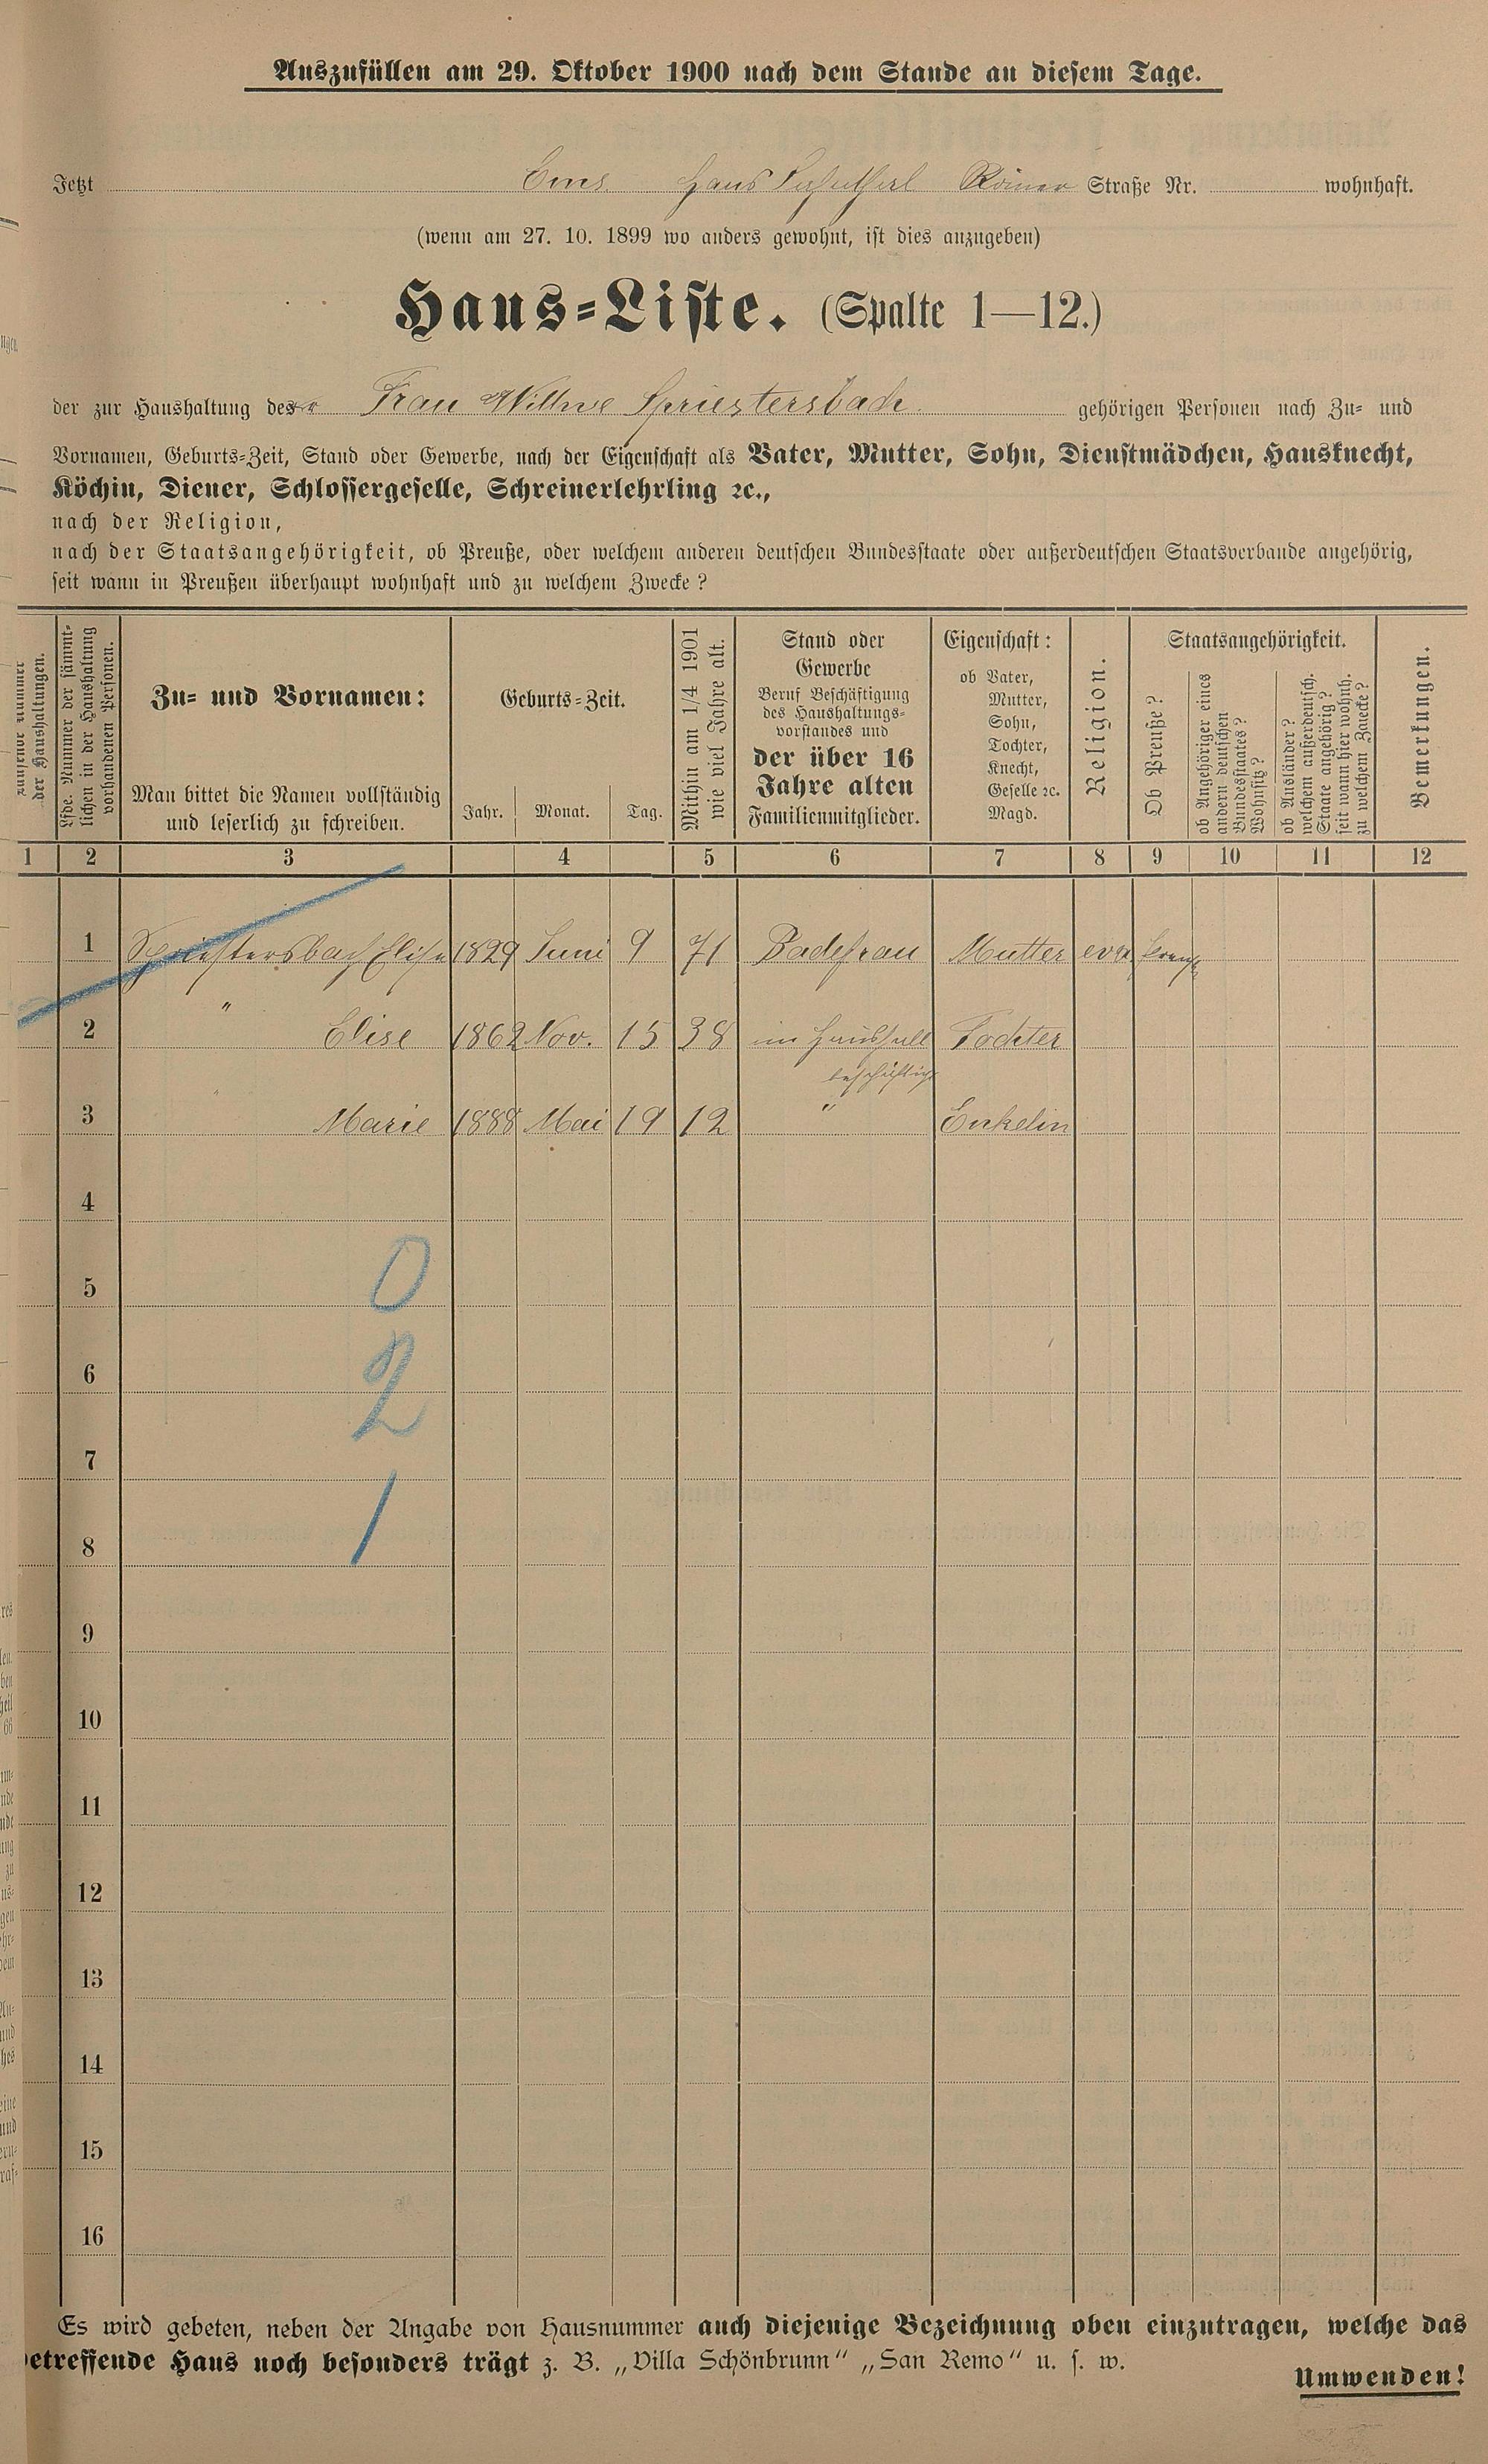 Auszufüllen am 29. Oktober 1900 nach dem Stande an diesem Tage.
Jetzt Ems Haus Römer Straße Nr. wohnhaft.
(wenn am 27. 10. 1899 wo anders gewohnt, ist dies anzugeben)
Haus-Liste. (Spalte 1—12.)
der zur Haushaltung der Frau Wittwe Spriestersbach gehörigen Personen nach Zu- und
Vornamen, Geburts-Zeit, Stand oder Gewerbe, nach der Eigenschaft als Vater, Mutter, Sohn, Dienstmädchen, Hausknecht,
Köchin, Diener, Schlossergeselle, Schreinerlehrling ꝛc.,
nach der Religion,
nach der Staatsangehörigkeit, ob Preuße, oder welchem anderen deutschen Bundesstaate oder außerdeutschen Staatsverbande angehörig,
seit wann in Preußen überhaupt wohnhaft und zu welchem Zwecke?
Nummer
der Haushaltungen.
Lfde. Nummer der sämmt-
lichen in der Haushaltung
vorhandenen Personen.
Zu- und Vornamen:
Man bittet die Namen vollständig
und leserlich zu schreiben.
Geburts-Zeit.
Jahr. Monat. Tag.
Mithin am 1/4 1901
wie viel Jahre alt.
Stand oder
Gewerbe
Beruf Beschäftigung
des Haushaltungs-
vorstandes und
der über 16
Jahre alten
Familienmitglieder.
Eigenschaft:
ob Vater,
Mutter,
Sohn,
Tochter,
Knecht,
Geselle ꝛc.
Magd.
Religion.
Staatsangehörigkeit.
Ob Preuße?
ob Angehöriger eines
andern deutschen
Bundesstaates?
Wohnsitz?
ob Ausländer?
welchem außerdeutsch.
Staate angehörig?
seit wann hier wohnh.
zu welchem Zwecke?
Bemerkungen.
1 2 3 4 5 6 7 8 9 10 11 12
1 Spriestersbach Elise 1829 Juni 9 71 Badefrau Mutter evg.
2 " Elise 1862 Nov. 15 38 im Haushalt Tochter
beschäftigt
3 " Marie 1888 Mai 19 12 " Enkelin
4
0
5
2
6
7
1
8
9
10
11
12
13
14
15
16
Es wird gebeten, neben der Angabe von Hausnummer auch diejenige Bezeichnung oben einzutragen, welche das
betreffende Haus noch besonders trägt z. B. „Villa Schönbrunn“ „San Remo“ u. s. w.
Umwenden!